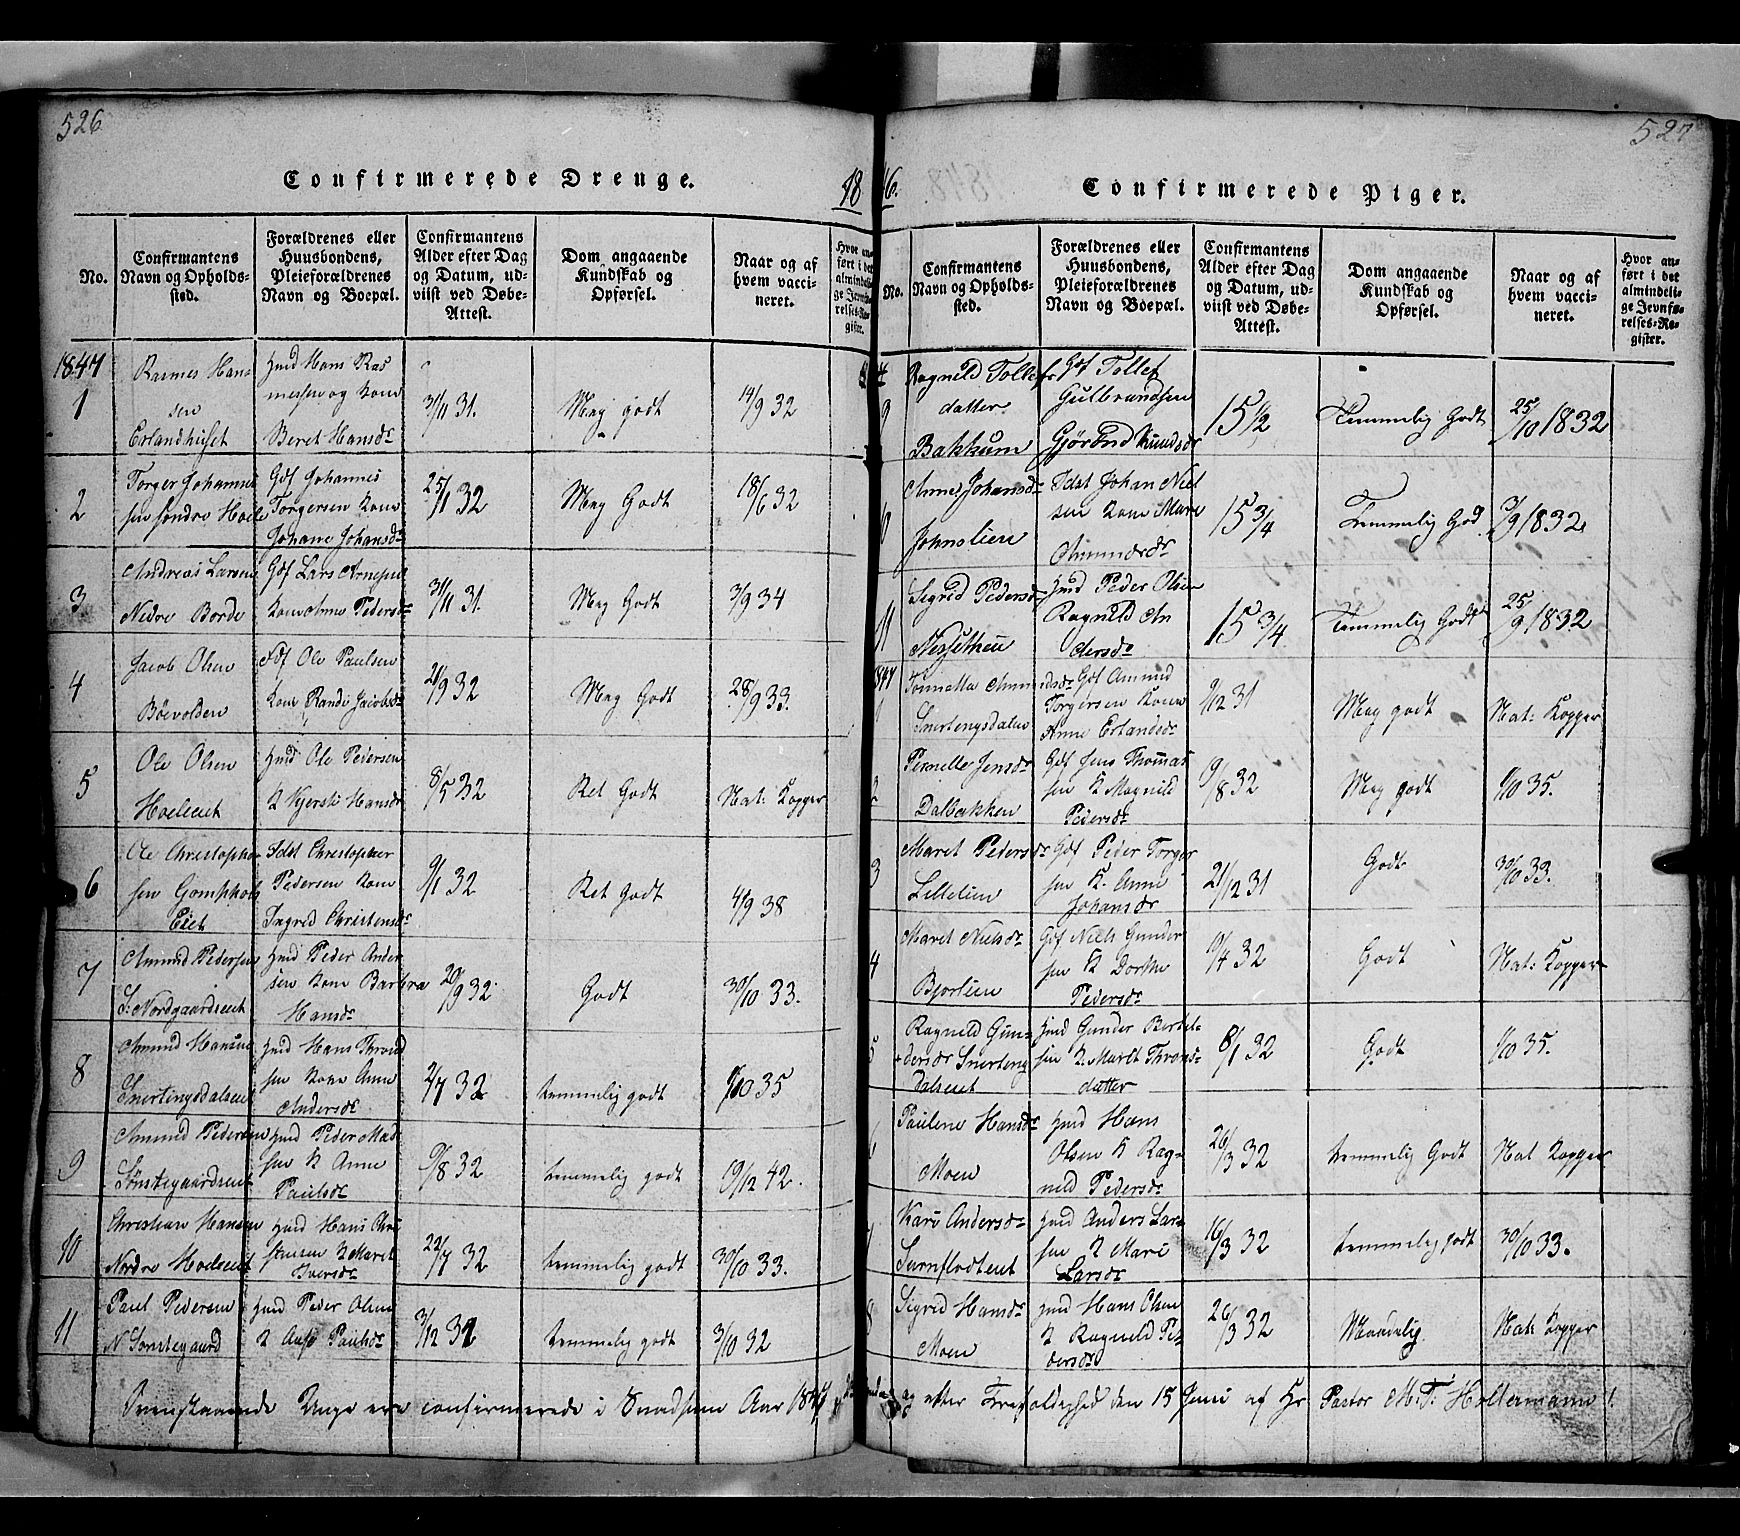 526
Confirmerede Drenge.
18
No.
Confirmantens Navn og Opholds-sted.
Forældrenes eller Huusbondens, Pleieforældrenes Navn og Boepæl.
Confirmantens Alder efter Dag og Datum, ud-viist ved Døbe-Attest.
Dom angaaende Kundskab og Opførsel.
Naar og af hvem vacci-neret.
Hvor an-ført i det almindeli-ge Jevnfø-relses-Re-gister.
1847
1
Rasmes Han-
sen
Erlandhuset
Hmd Hans Ras
messen og kone
Beret Hansdr
31/11 31.
Meg godt
14/9 32
2
Torger Johannes
sen søndre Hoele
Gdf Johannes
Torgersen kone
Johane Johansdr
25/1 32
Meg Godt
18/6 32
3
Andreas Larsen
Nedre Borde
Gdf Lars Arnesen
kone Anne Pedersdr
31/11 31.
Meg Godt
3/9 34
4
Jacob Olsen
Bøevolden
Fdf Ole Paulsen
kone Rande Jacobsdr
21/9 32
Meg Godt
28/9 33.
5
Ole Olsen
Hoeleeet
Hmd Ole Pedersen
K Kjersti Hansdr
8/5 32
Ret Godt
Nat: Kopper
6
Ole Christopher
sen
Eiet
Idst Christopher
Pedersen kone
Ingred Christensdr
9/1 32
Ret Godt
4/9 38
7
Amund Pedersen
S: Nordgaardseiet
Hmd Peder Ander
sen kone Barbra
Hansdr
20/9 32
Godt
30/10 33.
8
Amund Hansen
Snertingsdalseiet
Hmd Hans Thrond
sen kone Anne
Andersdr
2/7 32
temmelig godt
1/10 35
9
Amund Pedersen
Sønstegaardseiet
Hmd Peder Mad
sen K Anne
Paulsdr
9/8 32
temmelig godt
19/12 42.
10
Christian Hansen
Nordre Hoelseiet
Hmd Hans Chri
stensen K Maret
Iversdr
22/7 32
temmelig godt
30/10 33.
11
Paul Pedersen
N Sønstegaard
Hmd Peder Olsen
K Aase Paulsdr
3/12 31
temmelig godt
3/10 32
Ovenstaaende Unge ere confirmerede i Snadsum Aar 1847
527
46.
Confirmerede Piger.
No.
Confirmantens Navn og Opholds-sted.
Forældrenes eller Huusbondens, Pleieforældrenes Navn og Boepæl.
Confirmantens Alder efter Dag og Datum, ud-viist ved Døbe-Attest.
Dom angaaende Kundskab og Opførsel.
Naar og af hvem vacci-neret.
Hvor an-ført i det almindeli-ge Jevnfø-relses-Re-gister.
9
Ragnild Tollefs
datter
Bakkum
Gdf Tollef
Gulbrandsen
Gjørond Knudsdr
15 1/2
Temmelig Godt
25/10 1832
Anne Johansdr
Johnslien
Idst Johan Niel
sen kone Mare
Amundsdr
15 3/4
Temmelig God
7/9 1832
11
Sigrid Pedersdr
Hmd Peder Olsen
Ragnild An
dersdr
15 3/4
Temmelig Godt
25/9 1832
1847
Tonnetta Amundsdr
Snertengsdalen
Gdf Amund
Torgersen kone
Anne Erlandsdr
9/12 31
Meg godt
Nat: Kopper
2
Pernelle Jensdr
Dalbakken
Gdf Jens Thomas
sen K Magnild
Pedersdr
9/8 32
Meg godt
1/10 35.
3
Maret Pedersdr
Lillelien
Gdf Peder Torger
sen K. Anne
Johansdr
21/12 31
Godt
30/10 33.
4
Maret Nielsdr
Bjorlien
Gdf Niels Gunder
sen K Dorthe
Pedersdr
10/4 32
Godt
Nat: Kopper
5
Ragneld Gun-
dersdr Snerteng
dalseiet
Hmd Gunder Bertel-
sen K. Maret Throns-
datter
8/1 32
Godt
1/10 35.
6
Paulene Hansdr
Moen
Hmd Hans
Olsen K Rag-
neld Pedersdr
26/3 32
temmelig Godt
Nat Kopper
Kari Andersdr
Hmd Anders Lar-
sen K Mari
Larsdr
16/3 32
temmelig godt
30/10 33.
8
Sigrid Hansdr
Moen
Hmd Hans Olsen
K Ragneld Pe-
dersdr
26/3 32
Maadelig
Nat: Kopper
og efter Trefoldighed den 15 Juni af Hr Pastor M. T. Holtermann